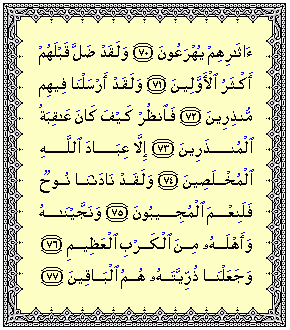 ءَاثَٰرِهِمْ يُهْرَعُونَ ٧٠ وَلَقَدْ ضَلَّ قَبْلَهُمْ
أَكْثَرُ ٱلْأَوَّلِينَ ٧١ وَلَقَدْ أَرْسَلْنَا فِيهِم
مُّنذِرِينَ ٧٢ فَٱنظُرْ كَيْفَ كَانَ عَٰقِبَةُ
ٱلْمُنذَرِينَ ٧٣ إِلَّا عِبَادَ ٱللَّهِ
ٱلْمُخْلَصِينَ ٧٤ وَلَقَدْ نَادَىٰنَا نُوحٌ
فَلَنِعْمَ ٱلْمُجِيبُونَ ٧٥ وَنَجَّيْنَٰهُ
وَأَهْلَهُۥ مِنَ ٱلْكَرْبِ ٱلْعَظِيمِ ٧٦
وَجَعَلْنَا ذُرِّيَّتَهُۥ هُمُ ٱلْبَاقِينَ ٧٧